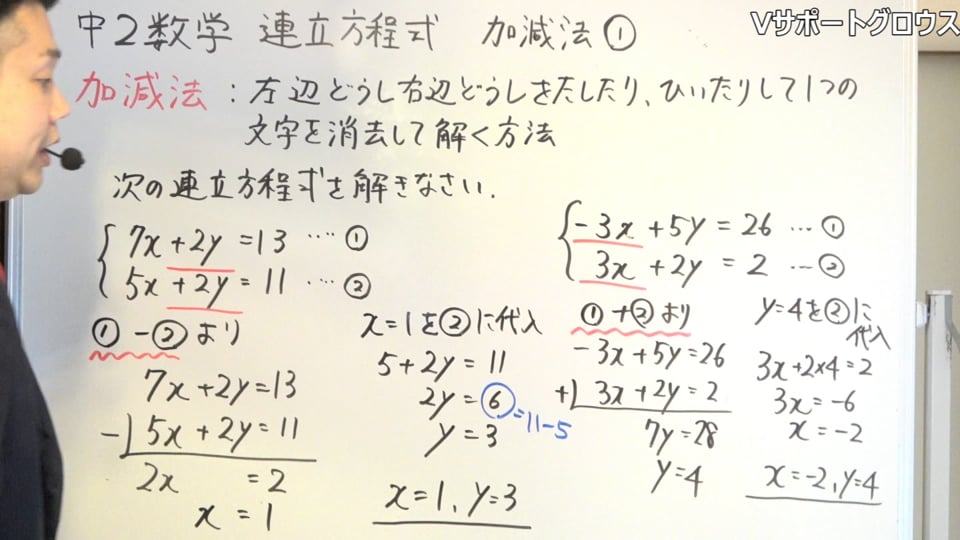 Vサポートグロウス
中2数学 連立方程式 加減法①
加減法:左辺どうし右辺どうしをたしたり、ひいたりして1つの
文字を消去して解く方法
次の連立方程式を解きなさい.
7x+2y=13 ‥‥ ①
5x+2y=11 ‥‥ ②
①-②より
7x+2y=13
-) 5x+2y=11
2x =2
x=1
x=1を②に代入
5+2y=11
2y=6
=11-5
y=3
x=1, y=3
-3x+5y=26 ‥‥ ①
3x+2y=2 ‥‥ ②
①+②より
-3x+5y=26
+) 3x+2y=2
7y=28
y=4
y=4を②に
代入
3x+2×4=2
3x=-6
x=-2
x=-2, y=4